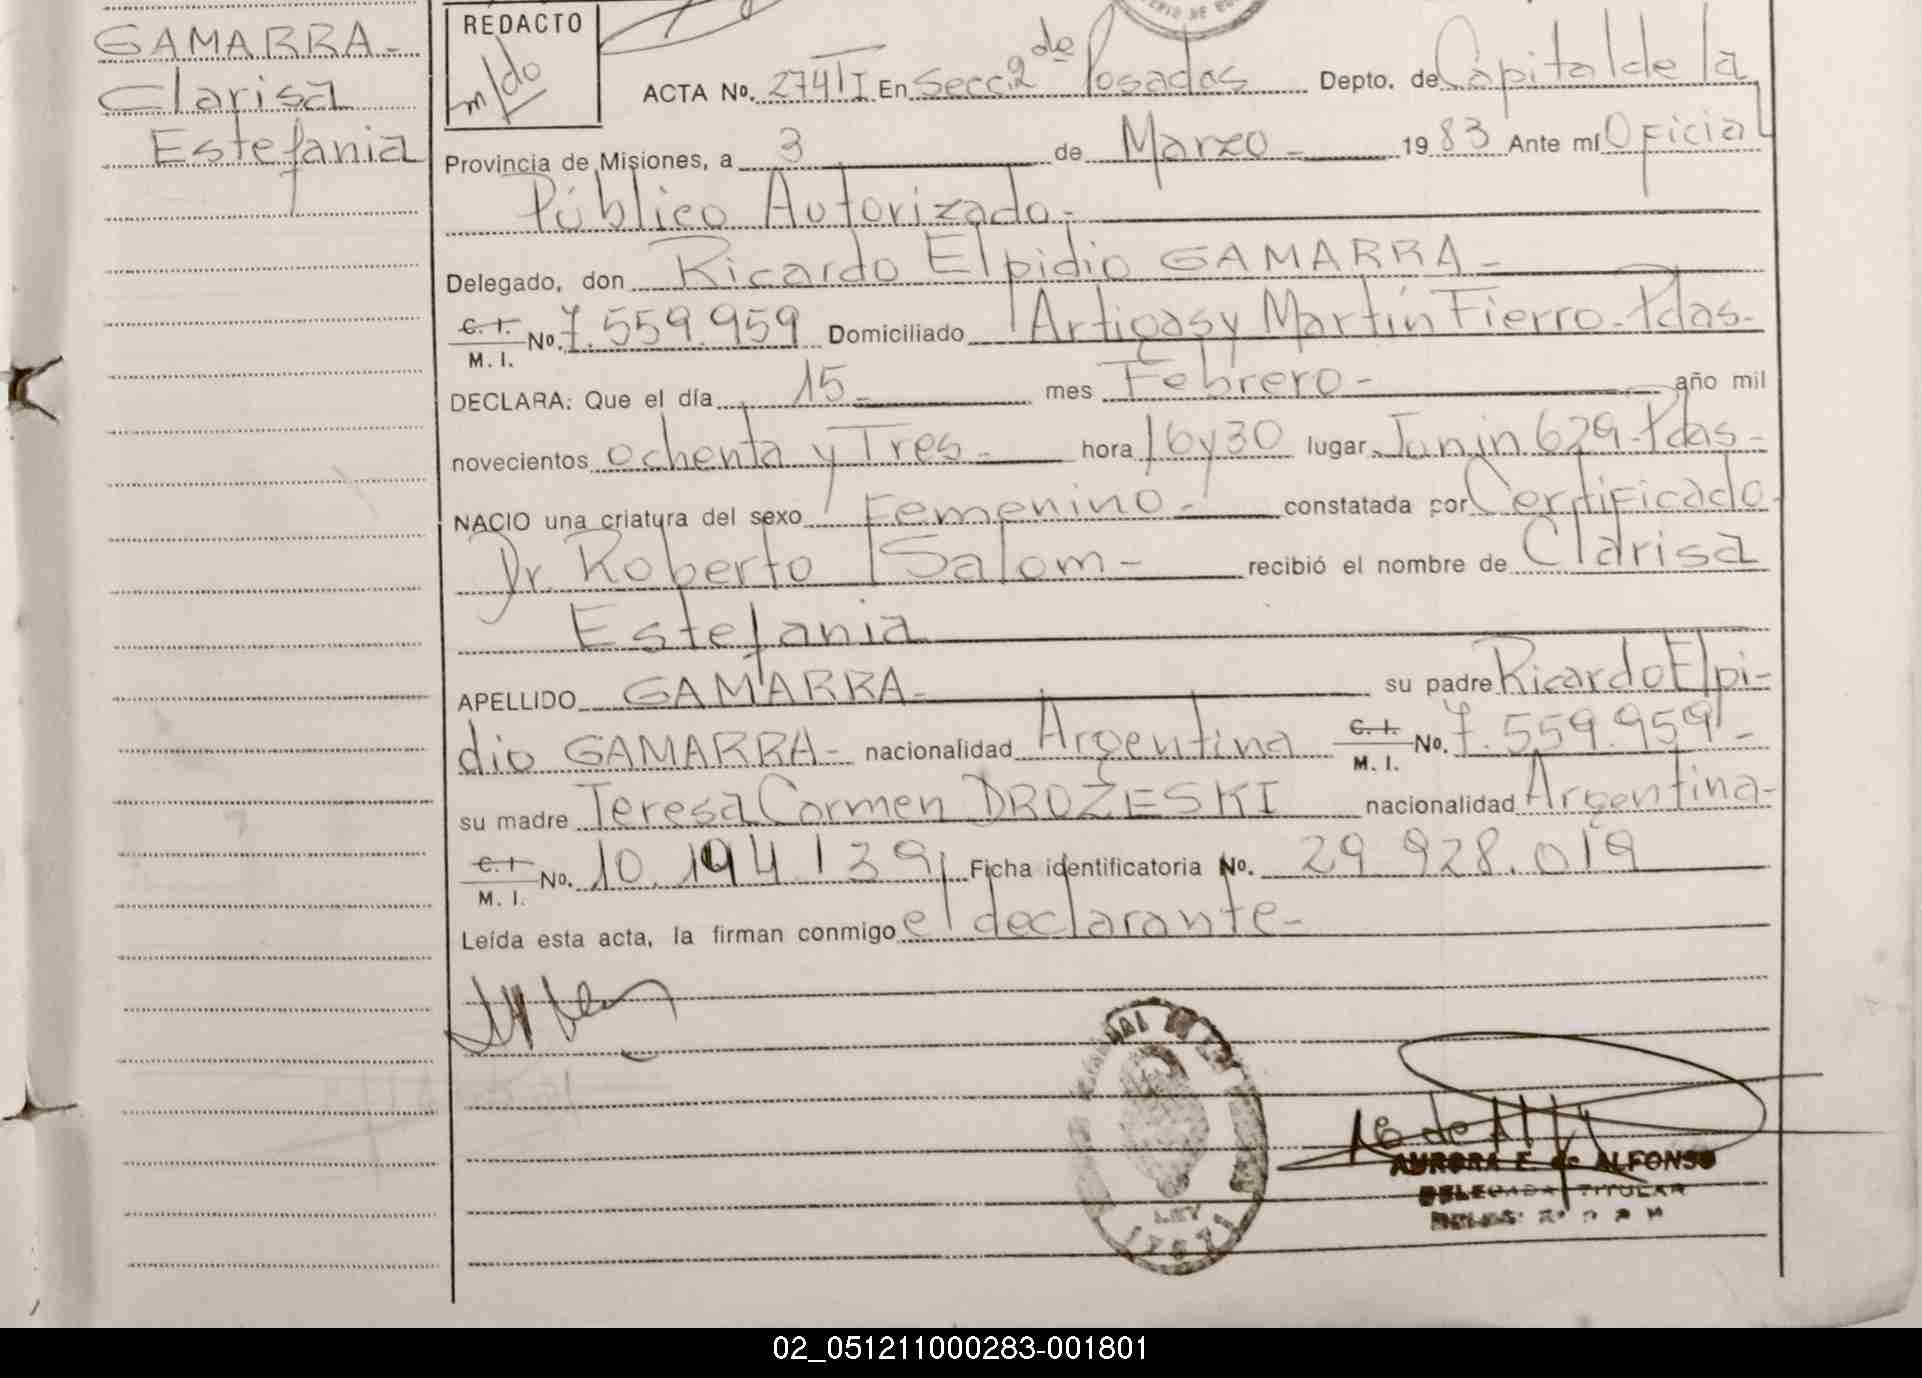 GAMARRA-
Clarisa
Estefania
REDACTO
m/do
ACTA No. 274 TI En Secc. 2 de Posadas Depto. de Capital de la
Provincia de Misiones, a 3 de Marzo - 1983 Ante mí Oficial
Público Autorizado-
Delegado, don Ricardo Elpidio GAMARRA-
C. I. M. I. No. 7.559.959 Domiciliado Artigas y Martín Fierro-Pdas-
DECLARA: Que el día 15- mes Febrero- año mil
novecientos ochenta y Tres- hora 16 y 30 lugar Junin 629-Pdas-
NACIO una criatura del sexo Femenino- constatada por Certificado-
Dr. Roberto Salom- recibió el nombre de Clarisa
Estefania
APELLIDO GAMARRA- su padre Ricardo Elpi-
dio GAMARRA- nacionalidad Argentina C. I. M. I. No. 7.559.959-
su madre Teresa Carmen DROZESKI nacionalidad Argentina-
C. I M. I. No. 10.194.139 Ficha identificatoria No. 29 928.019
Leída esta acta, la firman conmigo el declarante-
AURORA E. de ALFONSO
DELEGADA TITULAR
LEY
02_051211000283-001801